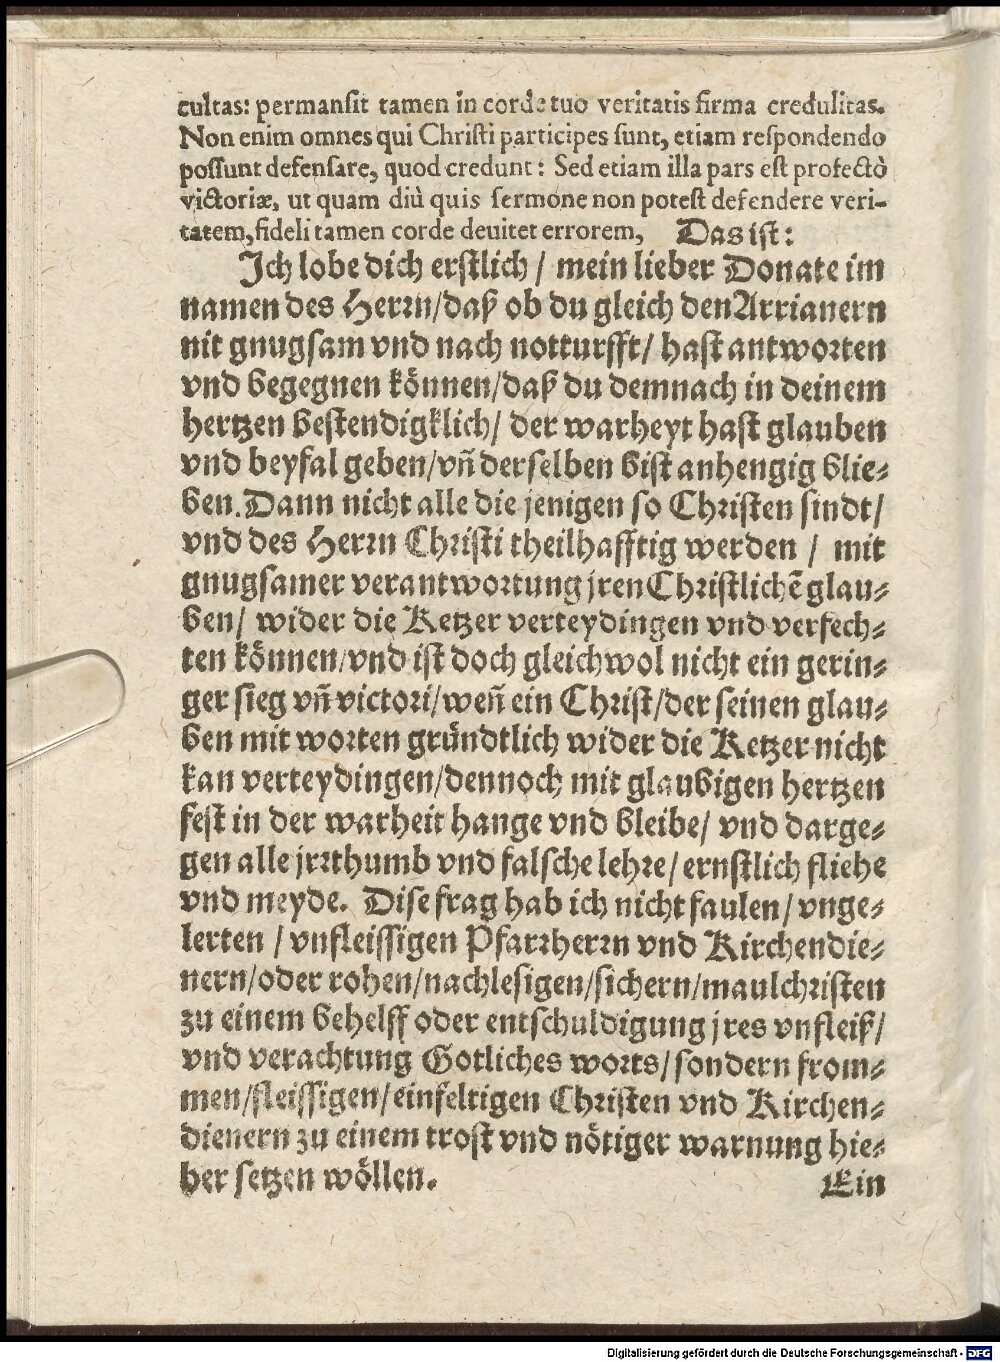 cultas: permansit tamen in corde tuo veritatis firma credulitas.
Non enim omnes qui Christi participes sunt, etiam respondendo
possunt defensare, quod credunt: Sed etiam illa pars est profectò
victoriæ, ut quam diù quis sermone non potest defendere veri-
tatem, fideli tamen corde deuitet errorem, Das ist:
Ich lobe dich erstlich / mein lieber Donate im
namen des Herrn/daß ob du gleich den Arrianern
nit gnugsam vnd nach notturfft/ hast antworten
vnd begegnen können/daß du demnach in deinem
hertzen bestendigklich/ der warheyt hast glauben
vnd beyfal geben/vñ derselben bist anhengig blie-
ben. Dann nicht alle die jenigen so Christen sindt/
vnd des Herrn Christi theilhafftig werden / mit
gnugsamer verantwortung jren Christlichē glau-
ben/ wider die Ketzer verteydingen vnd verfech-
ten können/vnd ist doch gleichwol nicht ein gerin-
ger sieg vñ victori/weñ ein Christ/der seinen glau-
ben mit worten gründtlich wider die Ketzer nicht
kan verteydingen/dennoch mit glaubigen hertzen
fest in der warheit hange vnd bleibe/ vnd darge-
gen alle jrrthumb vnd falsche lehre/ ernstlich fliehe
vnd meyde. Dise frag hab ich nicht faulen/ vnge-
lerten / vnfleissigen Pfarrherrn vnd Kirchendie-
nern/oder rohen/nachlesigen/sichern/maulchristen
zu einem behelff oder entschuldigung jres vnfleiß/
vnd verachtung Gotliches worts/ sondern from-
men/fleissigen/einfeltigen Christen vnd Kirchen-
dienern zu einem trost vnd nötiger warnung hie-
her setzen wöllen.
Ein
Digitalisierung gefördert durch die Deutsche Forschungsgemeinschaft - DFG